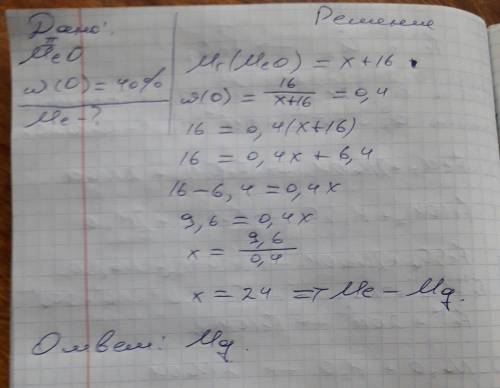 Дано:
II
MeO
ω(O) = 40%
Me - ?
Решение
Mr(MeO) = x+16
ω(O) = 16/(x+16) = 0,4
16 = 0,4(x+16)
16 = 0,4x + 6,4
16-6,4 = 0,4x
9,6 = 0,4x
x = 9,6/0,4
x = 24 => Me - Mg.
Ответ: Mg.